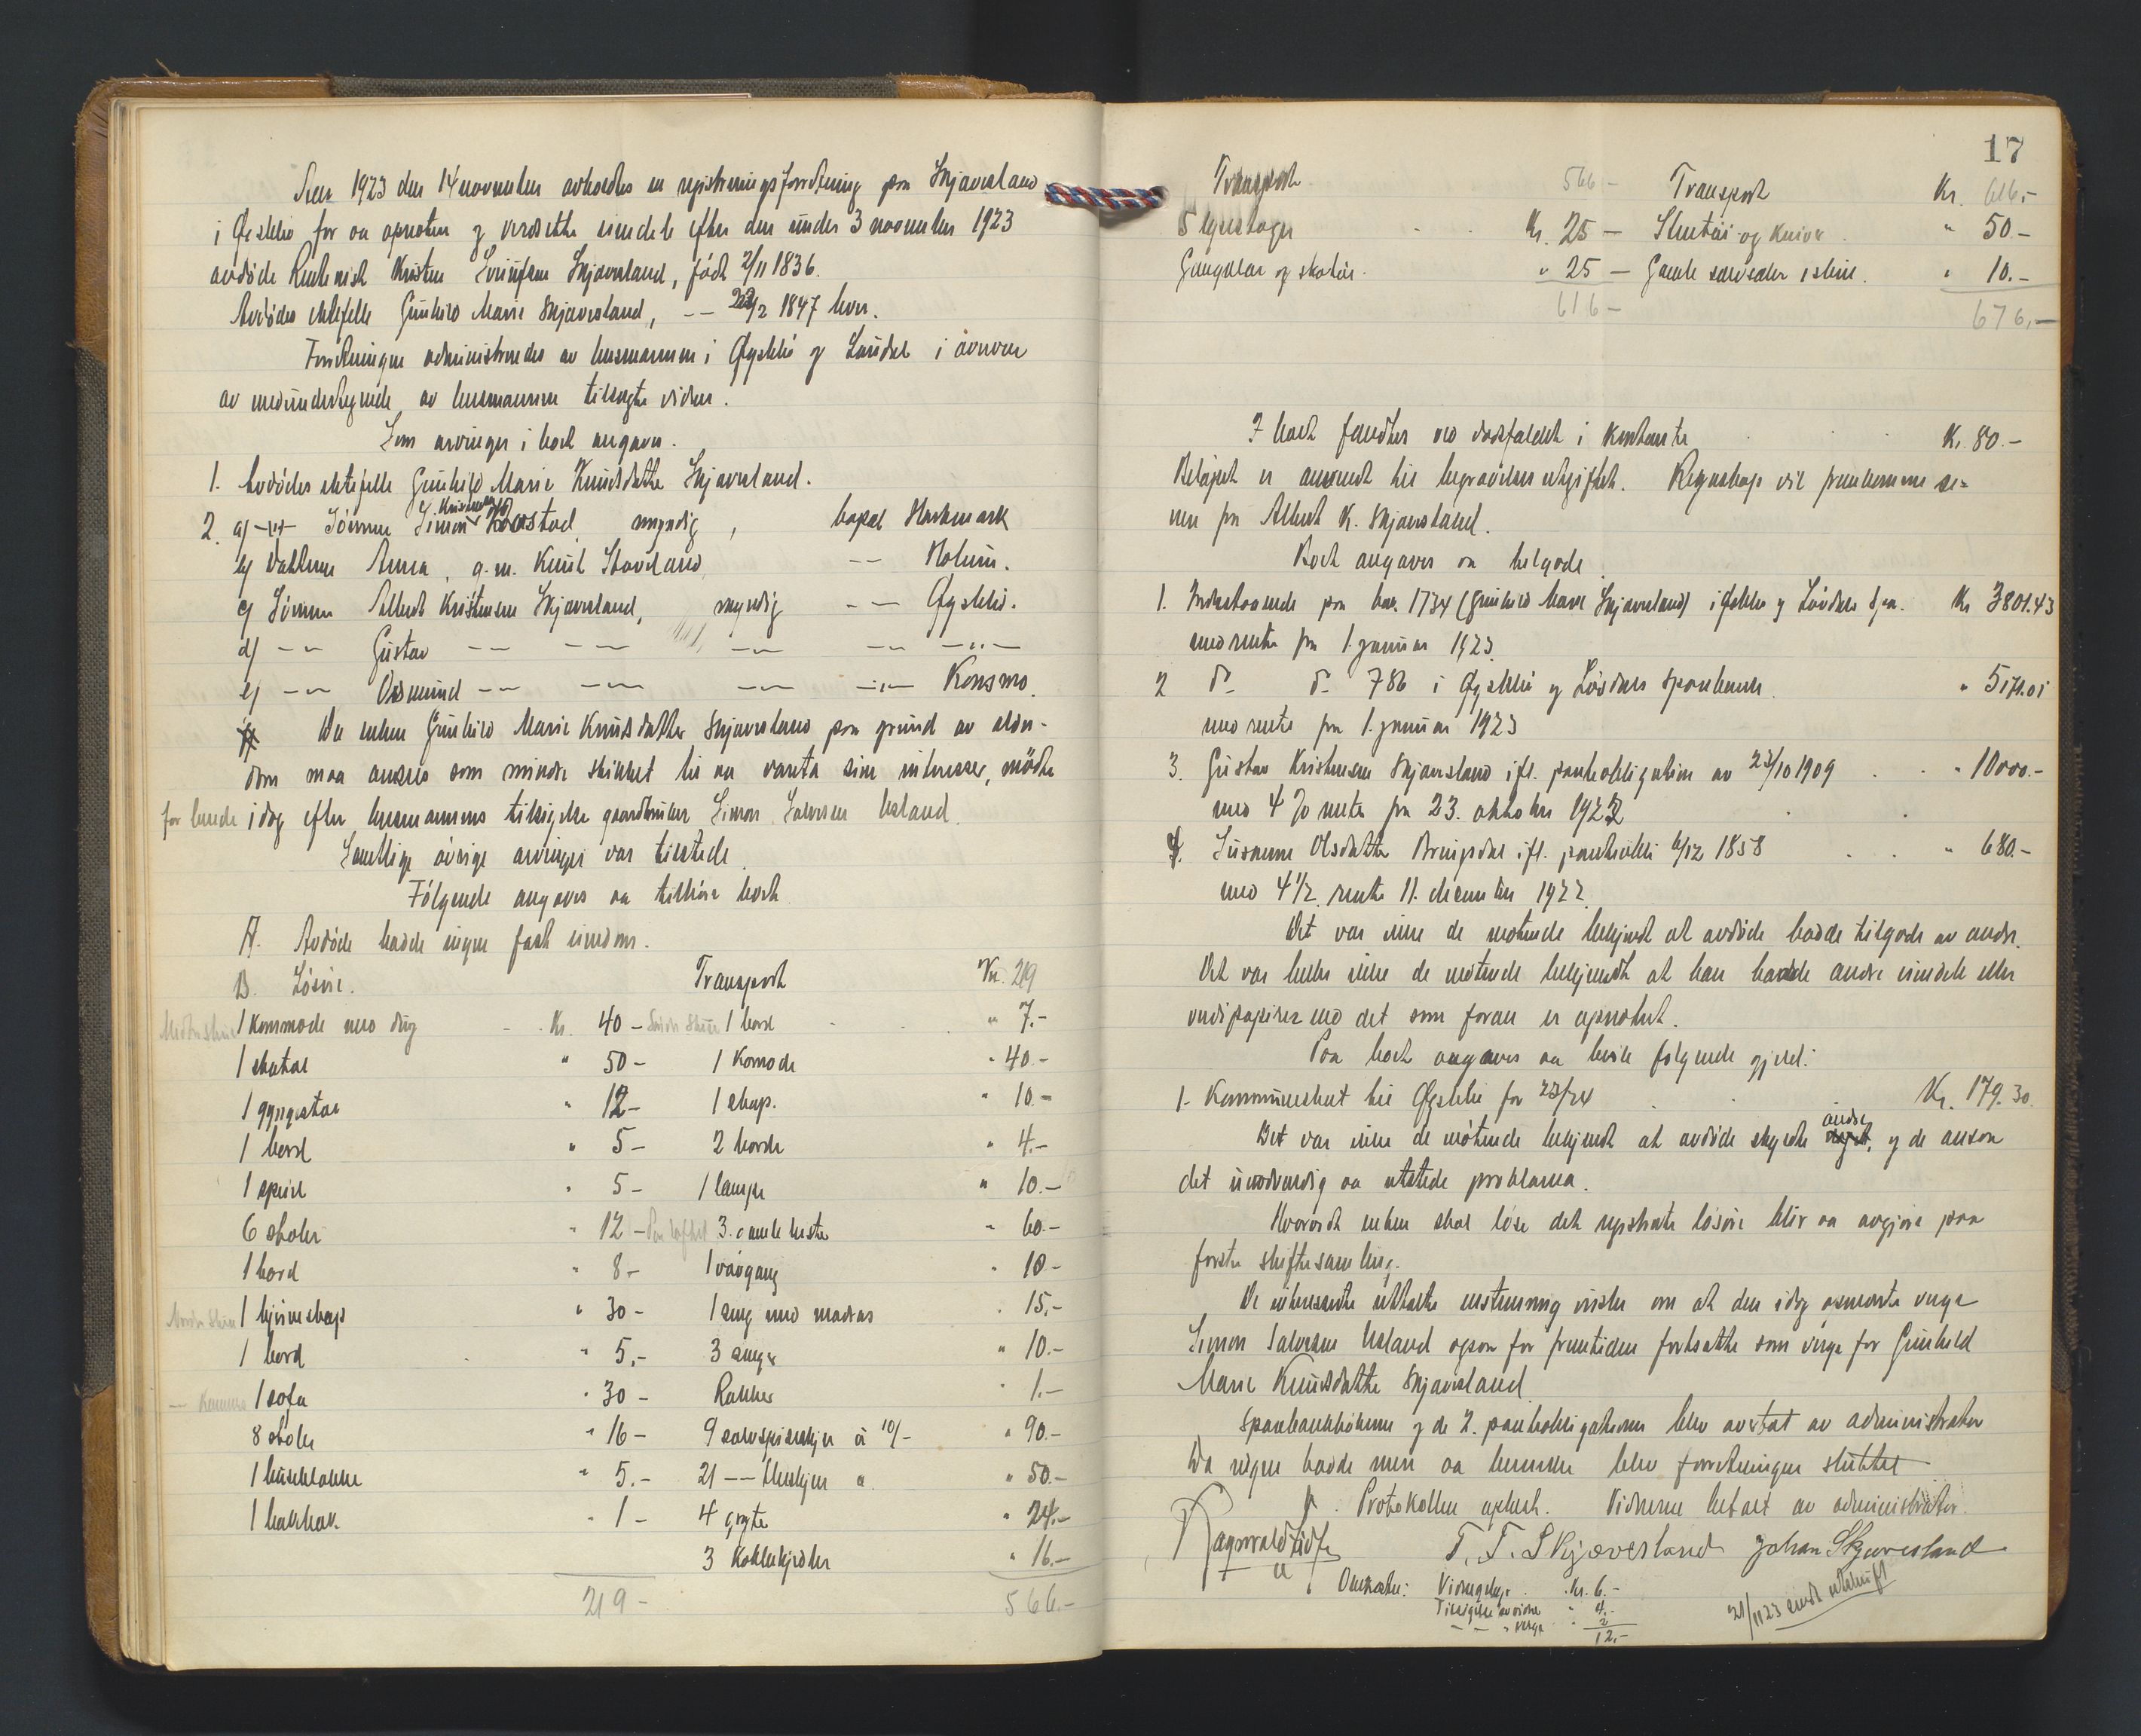 Aar 1923 den 14 november avholdtes en registreringsforretning paa Skjævesland
i Øyslebø for aa opnotere og verdsette eiendele efter den under 3 november 1923
avdøde Rentenist Kristen Skjævesland, født 2/11 1836.
Avdødes ektefelle Gunhild Marie Skjævesland, -"- 22/2 1847 lever.
Forretningen administrertes av lensmannen i Øyslebø og Laudal i nærvær
av medundertegnede av lensmannen tilsagte vidner.
Som arvinger i boet angaves.
1. Avdødes ektefelle Gunhild Marie Knudsdatter Skjævesland.
2. a) Sønnen Simon Kristensen myndig, bopæl Harkmark
b) Datteren Anna, g.m. Knut Stoveland -"- Holum.
c) Sønnen Albert Kristensen Skjævesland, myndig -"- Øyslebø.
d) -"- Gustav -"- -"- -"- -"- -"-
e) -"- Osmund -"- -"- -"- -"- Konsmo.
Da enken Gunhild Marie Knudsdatter Skjævesland paa grund av alder-
dom maa ansees som mindre skikket til aa vareta sine interesser, møtte
for hende idag efter lensmannens tilsigelse gaardbruker Simon Salvesen Usland.
Samtlige øvrige arvinger var tilstede.
Følgende angaves aa tilhøre boet
A. Avdøde hadde ingen fast eiendom.
B. Løsøre. Transport Kr. 219
1 kommode med dug Kr. 40 - 1 bord " 7.-
1 skatol " 50 - 1 Komode " 40.-
1 gyngestol " 12 - 1 skap. " 10.-
1 bord " 5 - 2 borde " 4.-
1 speil " 5 - 1 lampe " 10.-
6 stoler " 12 - Paa loftet 3 gamle kister " 60.-
1 bord " 8 - 1 vævgang " 10.-
1 hjørneskap " 30 - 1 seng med madras " 15.-
1 bord " 5,- 3 senger " 10.-
Kammers 1 sofa " 30 - Rokker " 1.-
8 stoler " 16 - 9 sølvspiseskjeer á 10/- " 90.-
1 husklokke " 5.- 21 -"- theskjeer a " 50.-
1 " 1 - 4 gryter " 24.-
3 Kobberkjedler " 16.-
219 - 566.-
17
Transport 566 - Transport Kr. 616,-
5 lysestager Kr. 25 - Stentøi og knive " 50.-
Gangklær og skotøi. " 25 - Gamle sølvsaker i skrin. " 10.-
616 - 676,-
I boet fandtes ved dødsfaldet i kontanter Kr. 80.-
Beløpet er anvendt til begravelses utgifter. Regnskap vil fremkomme se-
nere fra Albert K. Skjævesland.
Boet angaves aa ha tilgode
1. Indestaaende paa bok 1734 (Gunhild Marie Skjævesland) i Øyslebø og Løvdals Spb. Kr 3801.43
med rente fra 1. januar 1923.
2 do do 786 i Øyslebø og Løvdals Sparebank " 5171.01
med rente fra 1. januar 1923
3. Gustav Kristensen Skjævesland ifl. panteobligation av 23/10 1909 " 10000.-
med 4 % rente fra 23. oktober 1922
4. Susanne Olsdatter ifl. panteobl. 11/12 1858 " 680.-
med 4 1/2 rente 11. december 1922
Det var ikke de møtende bekjendt at avdøde hadde tilgode av andre.
Det var heller ikke de møtende bekjendt at han hadde andre eiendele eller
verdipapirer end det som foran er opnotert.
Paa boet angaves aa hvile følgende gjeld:
1. Kommuneskat til Øyslebø for 23/24 Kr. 179.30.
Det var ikke de møtende bekjendt at avdøde skyldte andre, og de ansaa
det unødvendig aa utstede proklama.
Hvorvidt enken skal løse det registrerte løsøre blir aa avgjøre paa
første skiftesamling.
De interesserte uttalte enstemmig ønske om at den idag opnevnte verge
Simon Salvesen Usland ogsaa for fremtiden fortsatte som verge for Gunhild
Marie Knudsdatter Skjævesland
Sparebankbøkene og de 2. panteobligationer blev avertat av administrator
Da ingen hadde mere aa bemerke blev forretningen sluttet
Protokollen oplæst. Vidnerne betalt av administrator.
T. F. Skjævesland Johan Skjævesland
Omkostn: Vidnegebyr Kr. 6.-
Tilsigelse av vidner " 4.-
-"- " verge " 2
12.-
21/11 23 sendt utskrift